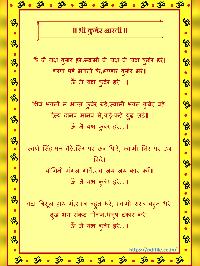 ॥ श्री कुबेर आरती ॥
ऊँ जै यक्ष कुबेर हरे, स्वामी जै यक्ष जै यक्ष कुबेर हरे।
शरण पड़े भगतों के, भण्डार कुबेर भरे।
ऊँ जै यक्ष कुबेर हरे...॥
शिव भक्तों में भक्त कुबेर बड़े, स्वामी भक्त कुबेर बड़े।
दैत्य दानव मानव से, कई-कई युद्ध लड़े॥
ऊँ जै यक्ष कुबेर हरे...॥
स्वर्ण सिंहासन बैठे, सिर पर छत्र फिरे, स्वामी सिर पर छत्र
फिरे।
योगिनी मंगल गावैं, सब जय जय कार करैं॥
ऊँ जै यक्ष कुबेर हरे...॥
गदा त्रिशूल हाथ में, शस्त्र बहुत धरे, स्वामी शस्त्र बहुत धरे।
दुख भय संकट मोचन, धनुष टंकार करे॥
ऊँ जै यक्ष कुबेर हरे...॥
https://pdffile.co.in/